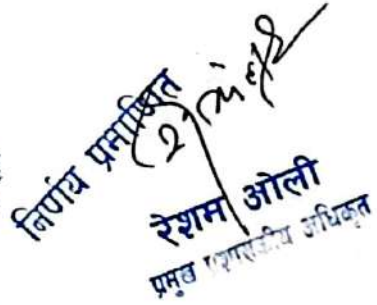 निर्णय प्रमाणित
रेशम ओली
प्रमुख प्रशासकीय अधिकृत